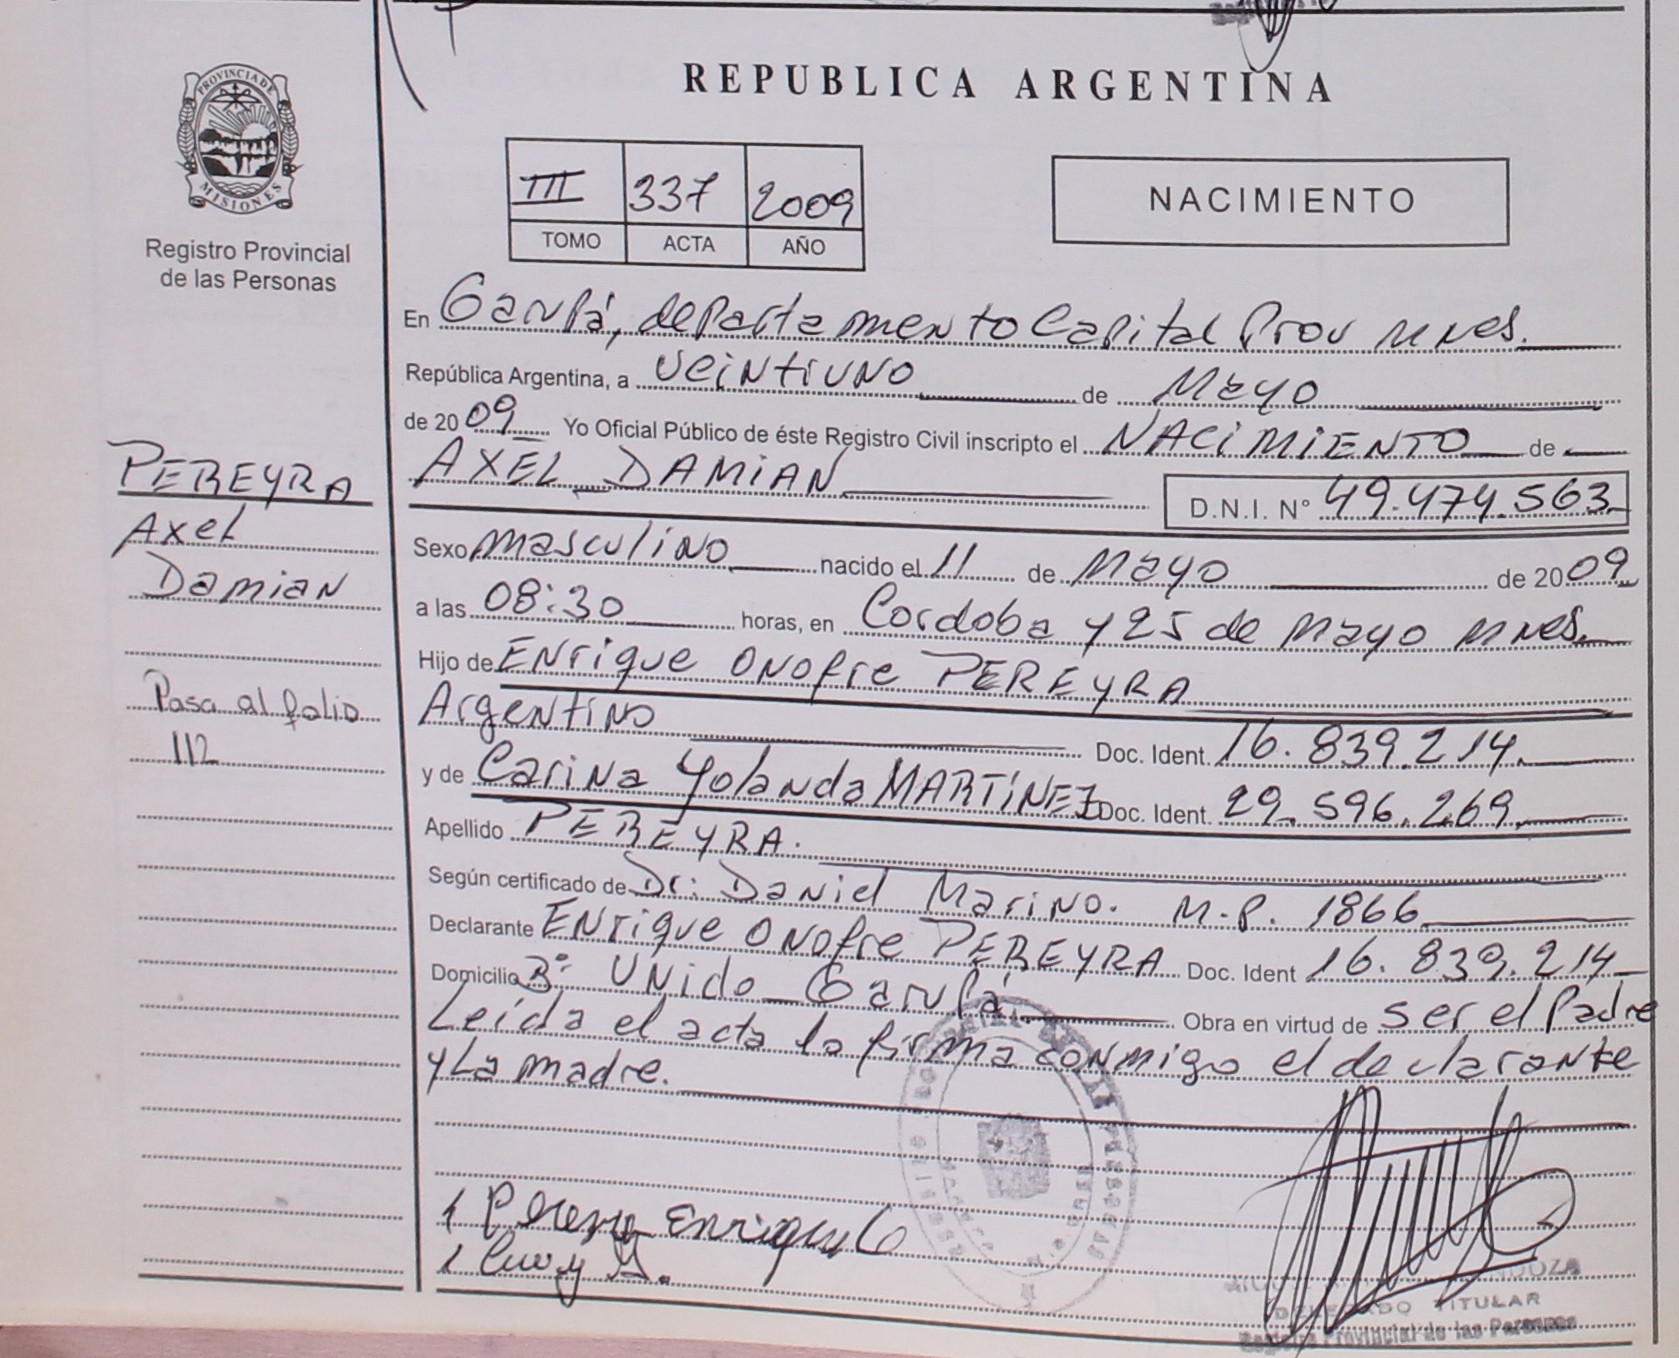 PROVINCIA DE
MISIONES
Registro Provincial
de las Personas
PEREYRA
Axel
Damian
Pasa al folio
112
REPUBLICA ARGENTINA
III 337 2009
TOMO ACTA AÑO
NACIMIENTO
En Garupá, departamento Capital Prov Mnes.
República Argentina, a veintiuno de Mayo
de 2009 Yo Oficial Público de éste Registro Civil inscripto el NACIMIENTO de
AXEL DAMIAN D.N.I. Nº 49.474.563
Sexo masculino nacido el 11 de Mayo de 2009
a las 08:30 horas, en Cordoba y 25 de Mayo Mnes.
Hijo de Enrique Onofre PEREYRA
Argentino Doc. Ident. 16.839.214.
y de Carina Yolanda MARTÍNEZ Doc. Ident. 29.596.269.
Apellido PEREYRA.
Según certificado de Dr: Daniel Marino. M.P. 1866
Declarante Enrique Onofre PEREYRA Doc. Ident 16.839.214
Domicilio Bº UNido Garupá Obra en virtud de ser el Padre
Leída el acta la firma conmigo el declarante
y La madre.
1 Pereyra Enrique O
DELEGADO TITULAR
Registro Provincial de las Personas